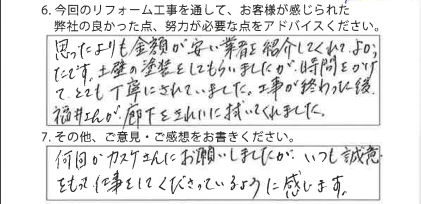 6. 今回のリフォーム工事を通して、お客様が感じられた
弊社の良かった点、努力が必要な点をアドバイスください。
思ったよりも金額が安い業者を紹介してくれてよかっ
たです。土壁の塗装をしてもらいましたが、時間をかけ
て、とても丁寧にされていました。工事が終わった後、
福井さんが廊下をきれいに拭いてくれました。
7. その他、ご意見・ご感想をお書きください。
何回かカスケさんにお願いしましたが、いつも誠意
をもって仕事をしてくださっているように感じます。